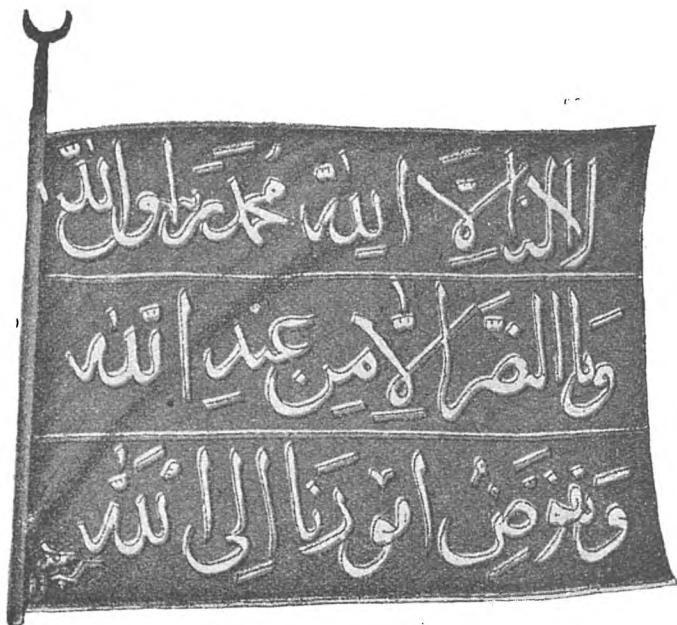 لا اله اِلَّا اللّٰه مُحَمَّد رَسول اللّٰه
وَما النصَّر الاَّ مِن عِندِ اللّٰه
وَنفوَّضُ امورَنا اِلى اللّٰه